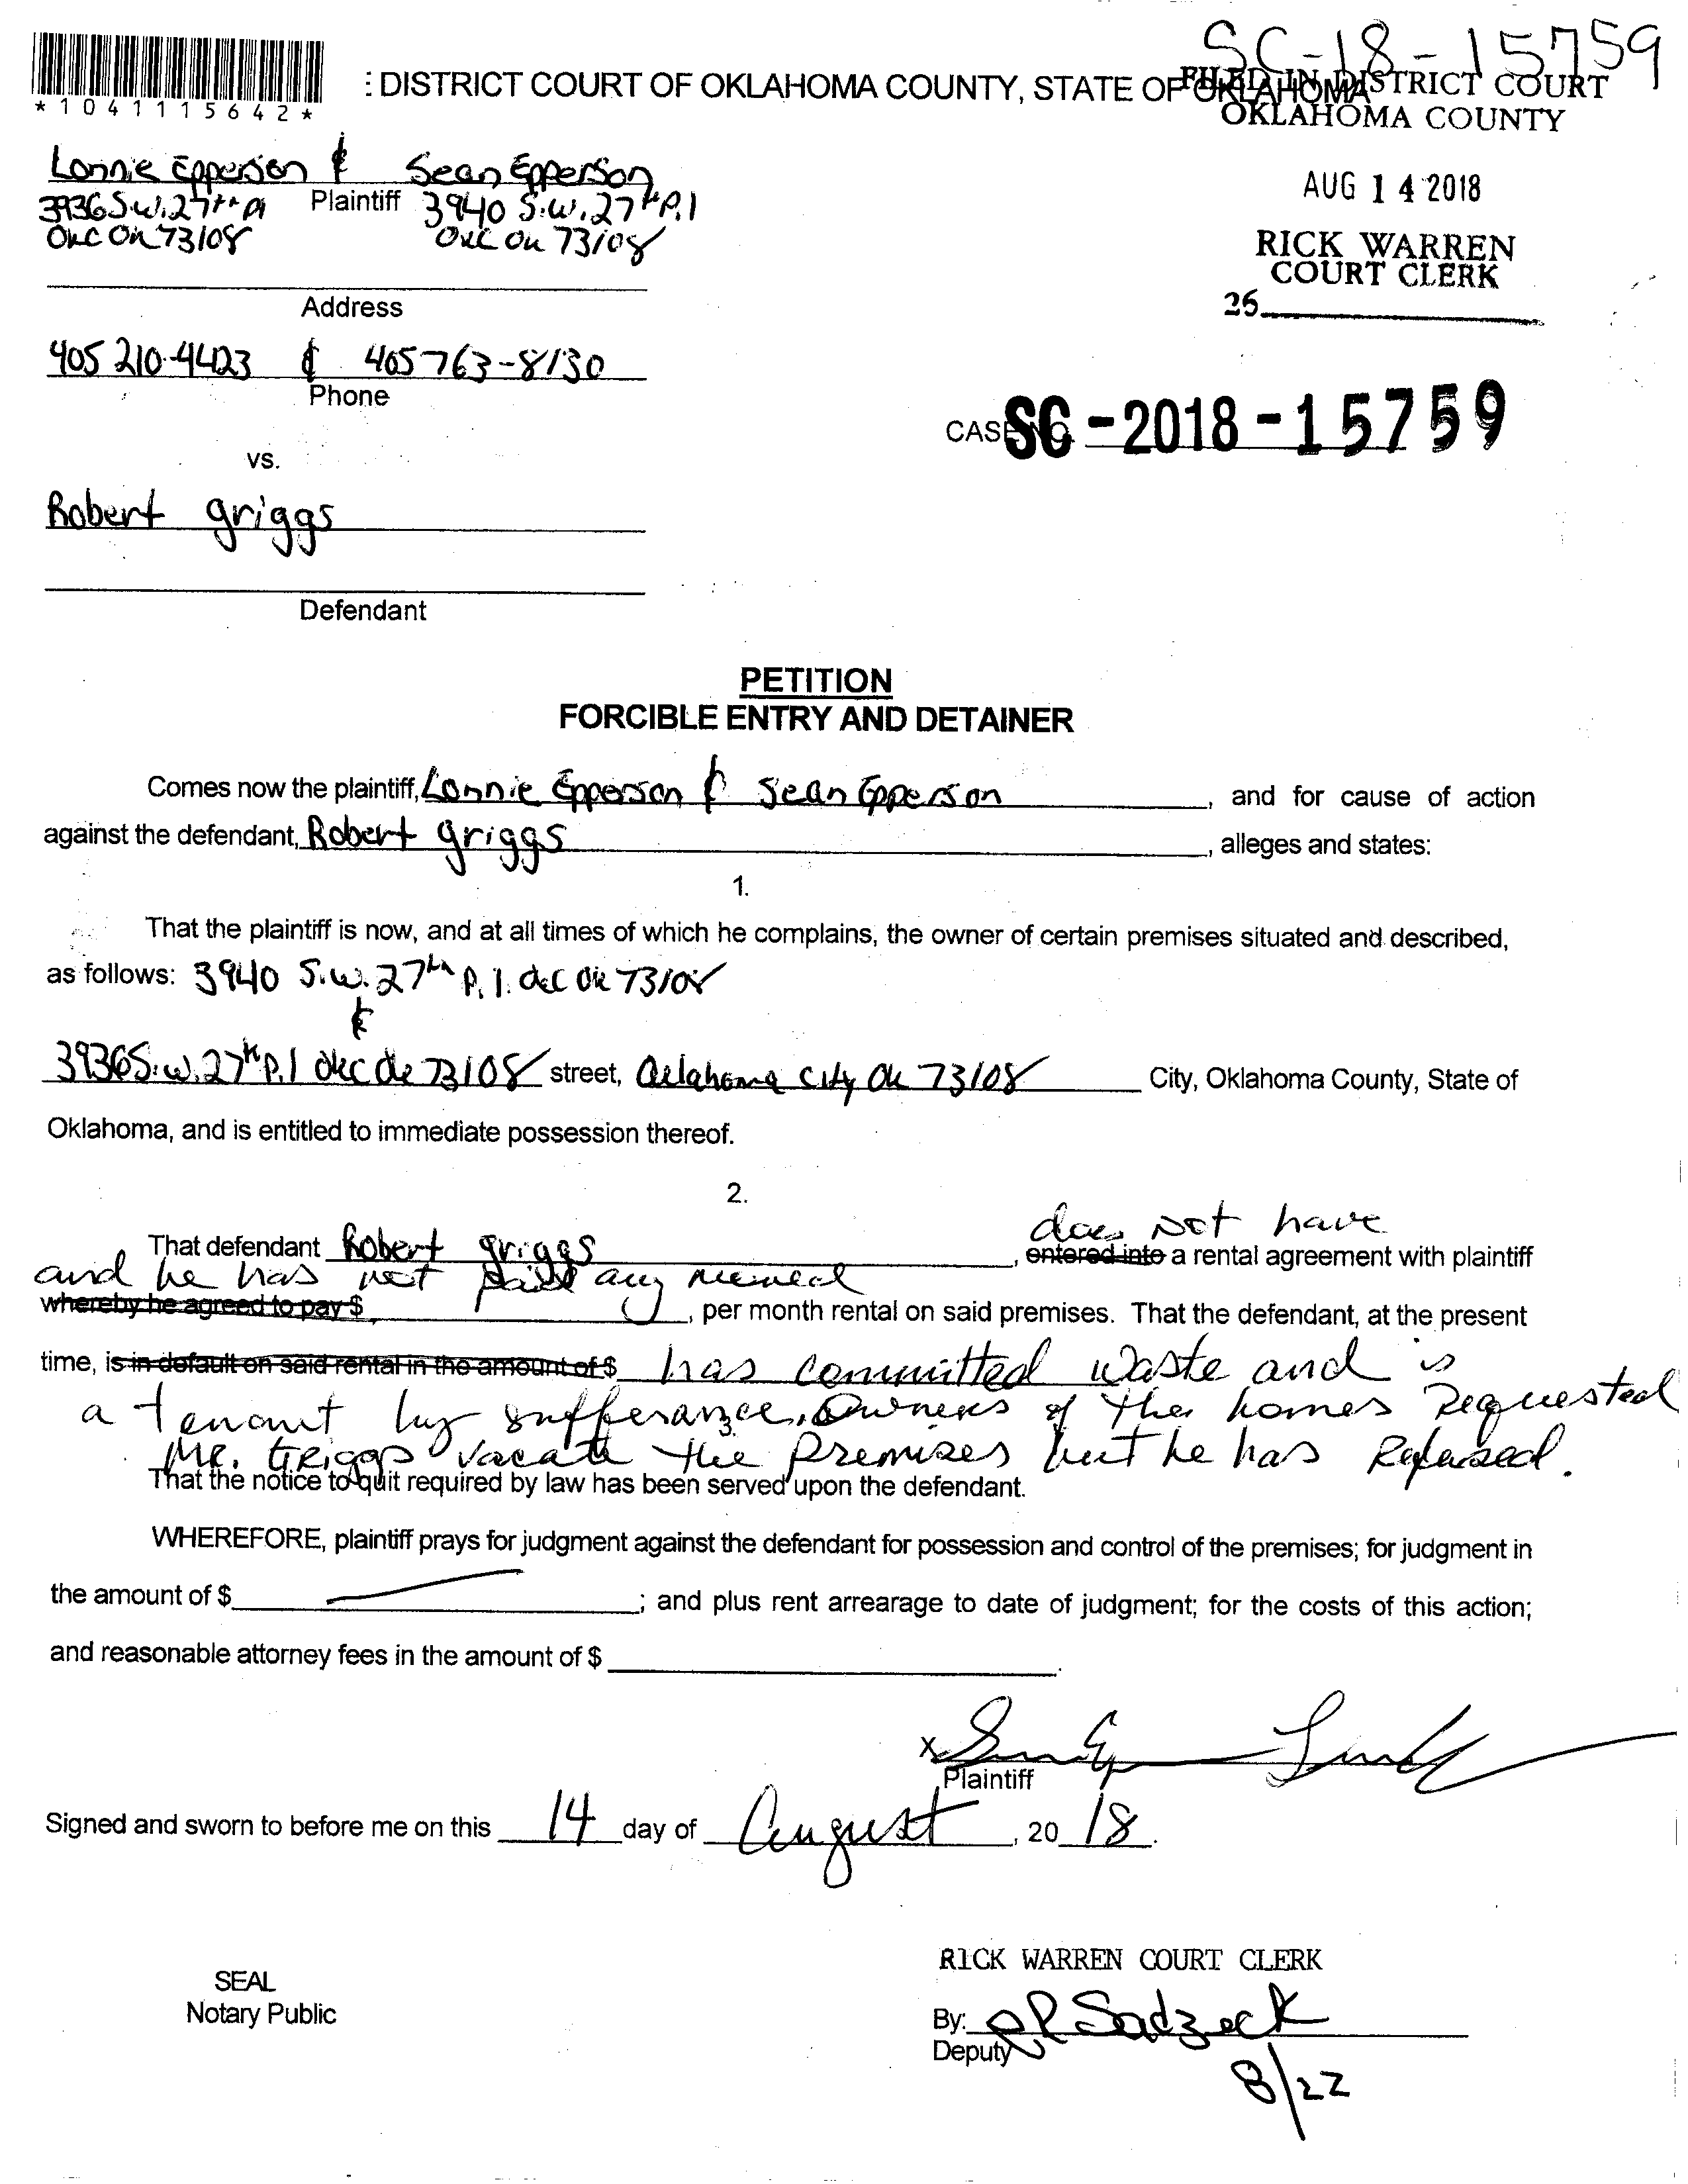 SC-18-15759
: DISTRICT COURT OF OKLAHOMA COUNTY, STATE OF OKLAHOMA
FILED IN DISTRICT COURT
OKLAHOMA COUNTY
*1041115642*
Lonnie Epperson & Sean Epperson
Plaintiff
3936 S.W. 27th Pl 3940 S.W. 27th P.l
OKC OK 73108 OKC OK 73108
AUG 14 2018
RICK WARREN
COURT CLERK
25
Address
405 210-4423 & 405 763-8130
Phone
CASE NO. SC-2018-15759
vs.
Robert griggs
Defendant
PETITION
FORCIBLE ENTRY AND DETAINER
Comes now the plaintiff, Lonnie Epperson & Sean Epperson, and for cause of action
against the defendant, Robert griggs, alleges and states:
1.
That the plaintiff is now, and at all times of which he complains, the owner of certain premises situated and described,
as follows: 3940 S.W. 27th P.l. okc Ok 73108
&
3936 S.W. 27th P.l okc ok 73108 street, Oklahoma City Ok 73108 City, Oklahoma County, State of
Oklahoma, and is entitled to immediate possession thereof.
2.
does not have
That defendant Robert griggs, entered into a rental agreement with plaintiff
and he has not paid any
whereby he agreed to pay $, per month rental on said premises. That the defendant, at the present
time, is in default on said rental in the amount of $ has committed waste and is
a tenant by sufferance. Owners of the homes requested
3.
Mr. Griggs vacate the premises but he has refused.
That the notice to quit required by law has been served upon the defendant.
WHEREFORE, plaintiff prays for judgment against the defendant for possession and control of the premises; for judgment in
the amount of $; and plus rent arrearage to date of judgment; for the costs of this action;
and reasonable attorney fees in the amount of $.
X
Plaintiff
Signed and sworn to before me on this 14 day of August, 20 18.
RICK WARREN COURT CLERK
SEAL
Notary Public
By: Sadzeck
Deputy
8/22